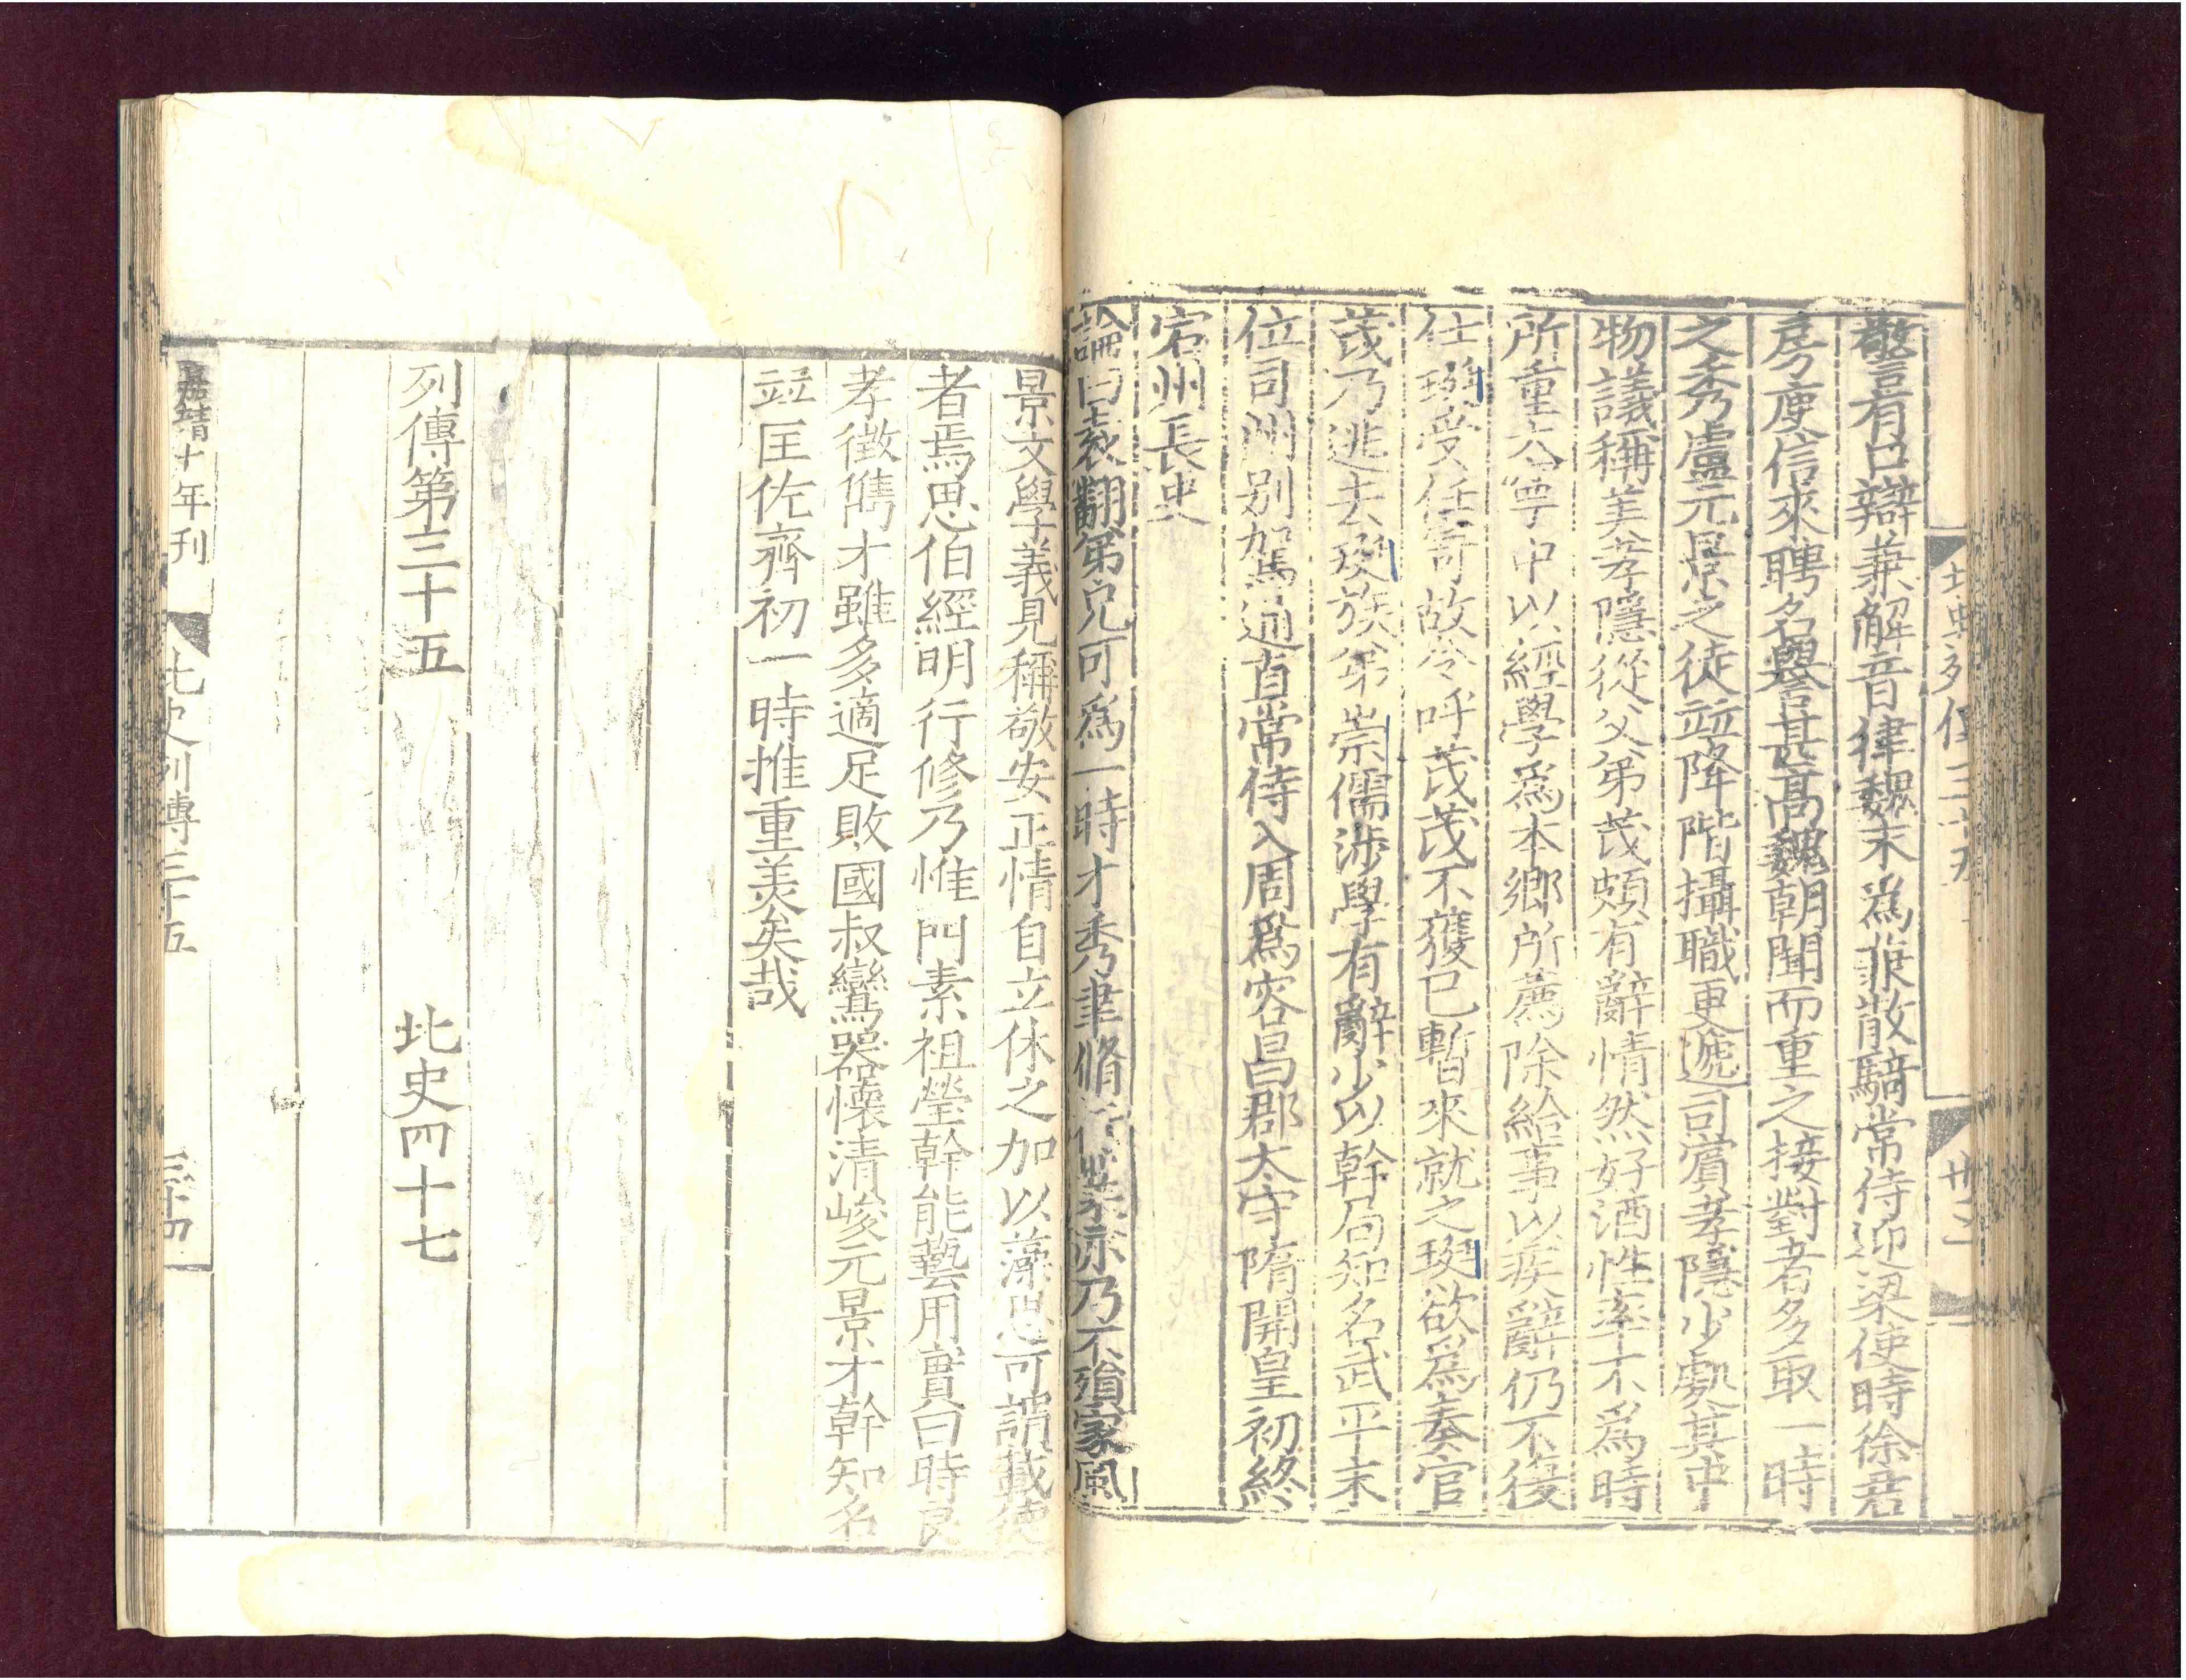 北史列傳三十五
卅三
警有口辯兼解音律魏末爲兼散騎常侍迎梁使時徐君
房庾信來聘名譽甚髙魏朝聞而重之接對者多取一時
之秀盧元景之徒並降階攝職更遞司賓孝隱少處其中
物議稱美孝隱從父弟茂頗有辭情然好酒性率不爲時
所重大寧中以經學爲本鄉所薦除給事以疾辭仍不復
仕珽受任寄故令呼茂茂不獲已暫來就之珽欲爲奏官
茂乃逃去珽族弟崇儒涉學有辭少以幹局知名武平末
位司州別駕通直常侍入周爲容昌郡太守隋開皇初終
宕州長史
論曰袁翻弟兄可爲一時才秀聿脩行業亦乃不殞家風
景文學義見稱敬安正情自立休之加以藻思可謂載德
者焉思伯經明行修乃惟門素祖瑩幹能藝用實曰時良
孝徵儁才雖多適足敗國叔鸞器懷清峻元景才幹知名
並匡佐齊初一時推重美矣哉
列傳第三十五　北史四十七
嘉靖十年刊
北史列傳三十五
三十四